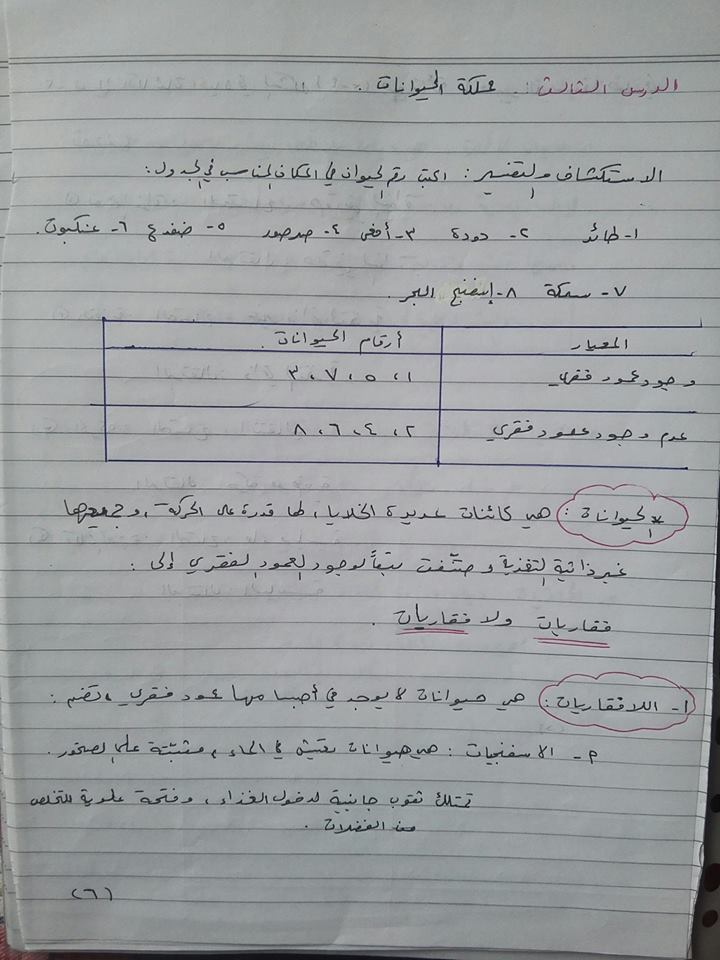 الدرس الثالث: مملكة الحيوانات.
الاستكشاف والتفسير: اكتب رقم الحيوان في المكان المناسب في الجدول:
١- طائر ٢- دودة ٣- أفعى ٤- صرصور ٥- ضفدع ٦- عنكبوت.
٧- سمكة ٨- إسفنج البحر.
المعيار أرقام الحيوانات
وجود عمود فقري ١، ٥، ٧، ٣
عدم وجود عمود فقري ٢، ٤، ٦، ٨
* الحيوانات: هي كائنات عديدة الخلايا، لها قدرة على الحركة، وجميعها
غير ذاتية التغذية وصنّفت تبعاً لوجود العمود الفقري إلى:
فقاريات ولا فقاريات.
١- اللافقاريات: هي حيوانات لا يوجد في أجسامها عمود فقري، تضم:
م- الاسفنجيات: هي حيوانات تعيش في الماء، مثبّتة على الصخور.
تمتلك ثقوب جانبية لدخول الغذاء، وفتحة علوية للتخلص
من الفضلات.
(٦)